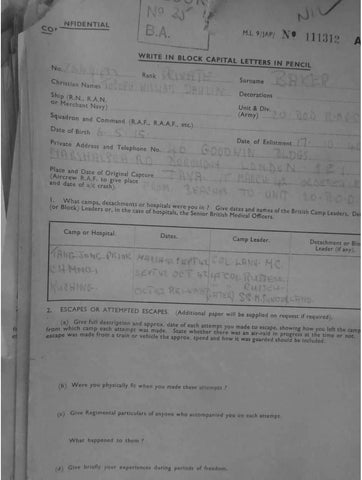 CO NFIDENTIAL
Nº 25
B.A.
NIL
M.I. 9/JAP/ Nº 111312 A
WRITE IN BLOCK CAPITAL LETTERS IN PENCIL
No. Rank PRIVATE Surname BAKER
Christian Names JOSEPH WILLIAM Decorations
Ship (R.N., R.A.N. or Merchant Navy) Unit & Div. (Army)
Squadron and Command (R.A.F., R.A.A.F., etc.)
Date of Birth 6.5.15 Date of Enlistment 17.10.40
Private Address and Telephone No. 40 GOODWIN BLDGS
MARSHALSEA RD BOROUGH LONDON S.E.
Place and Date of Original Capture JAVA MARCH 42
(Aircrew R.A.F. to give place and date of a/c crash). FROM TO UNIT
1. What camps, detachments or hospitals were you in ? Give dates and names of the British Camp Leaders, De
(or Block) Leaders or, in the case of hospitals, the Senior British Medical Officers.
Camp or Hospital. Dates. Camp Leader. Detachment or Blo
Leader (if any).
TANG JONG PRIOK COL LANE M.C.
CHANGI SEPT42 OCT 42 COL
KUCHING OCT42
2. ESCAPES OR ATTEMPTED ESCAPES. (Additional paper will be supplied on request if required).
(a) Give full description and approx. date of each attempt you made to escape, showing how you left the camp
from which camp each attempt was made. State whether there was an air-raid in progress at the time or not.
escape was made from a train or vehicle the approx. speed and how it was guarded should be included.
(b) Were you physically fit when you made these attempts ?
(c) Give Regimental particulars of anyone who accompanied you on each attempt.
What happened to them ?
(d) Give briefly your experiences during periods of freedom.